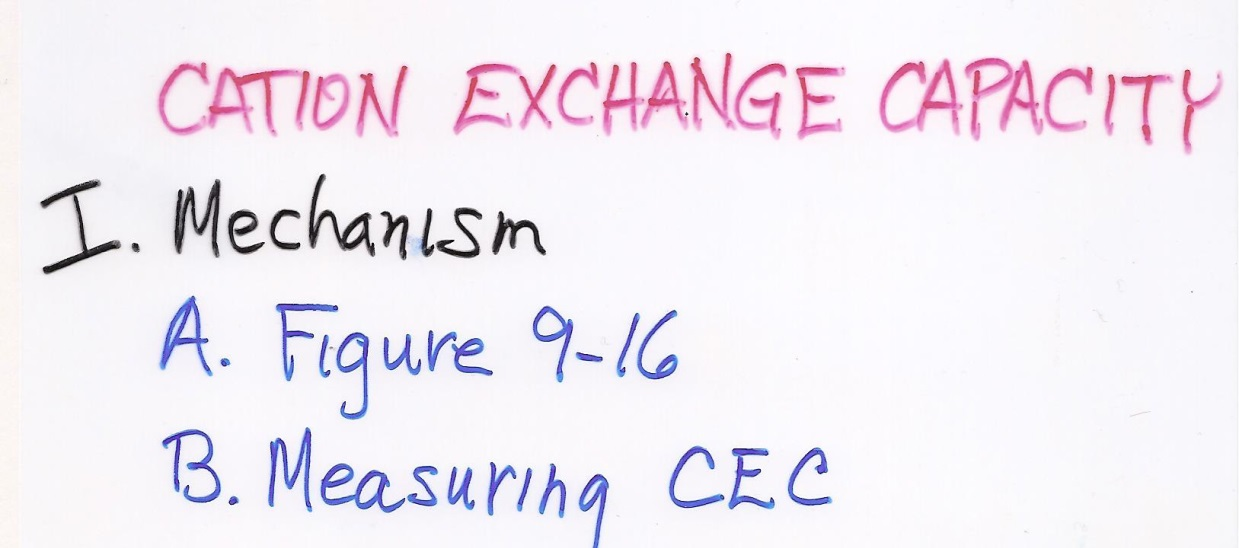 CATION EXCHANGE CAPACITY
I. Mechanism
A. Figure 9-16
B. Measuring CEC